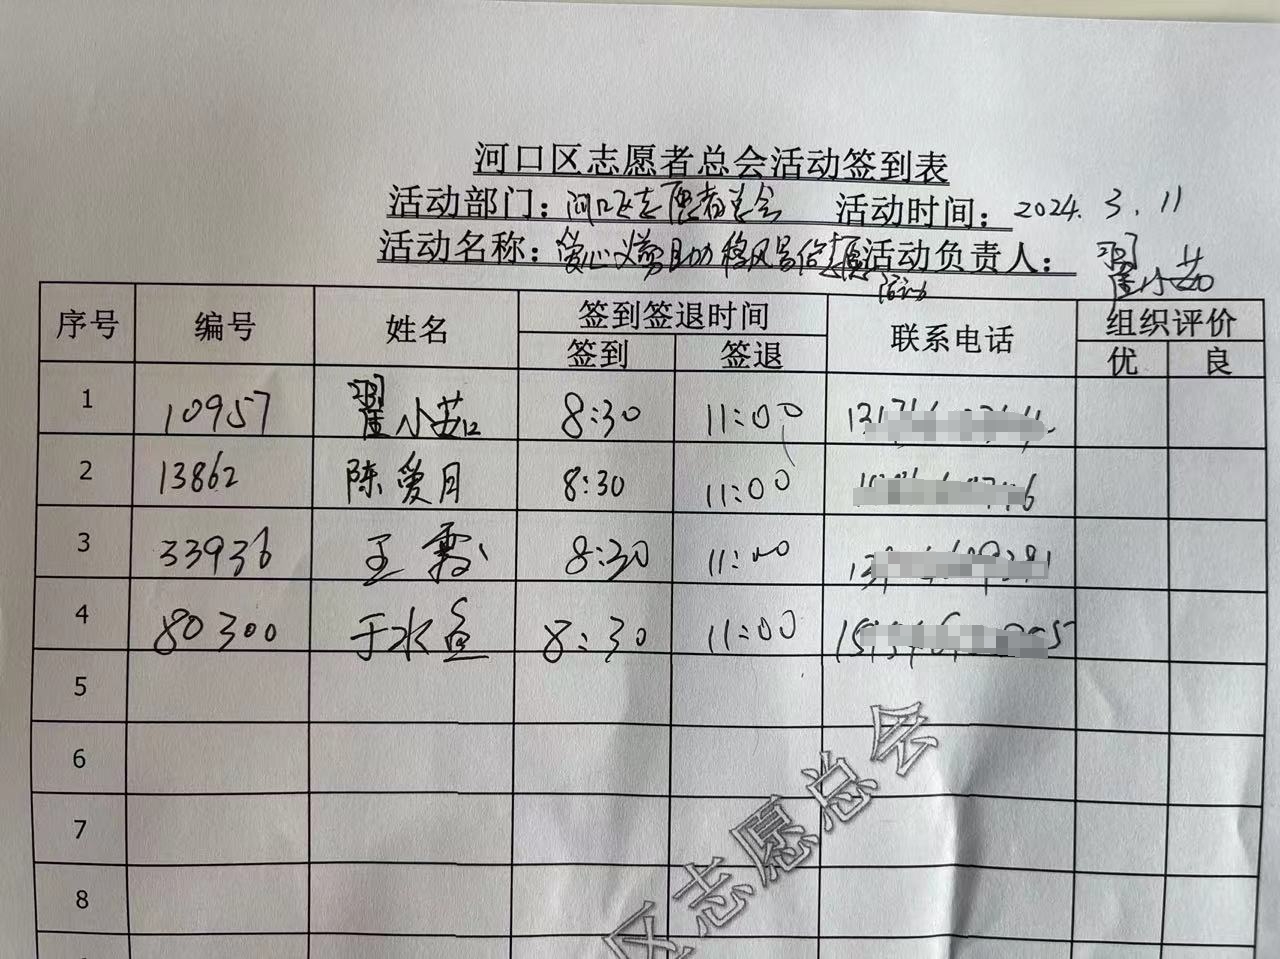 河口区志愿者总会活动签到表
活动部门：河口区志愿者总会 活动时间：2024.3.11
活动名称：爱心义剪助力移风易俗 活动负责人：翟小茹
活动
序号 编号 姓名 签到签退时间 联系电话 组织评价
签到 签退 优 良
1 10957 翟小茹 8:30 11:00
2 13862 陈爱月 8:30 11:00
3 33936 王霞 8:30 11:00
4 80300 于水鱼 8:30 11:00
5
6
7
8
区志愿总会